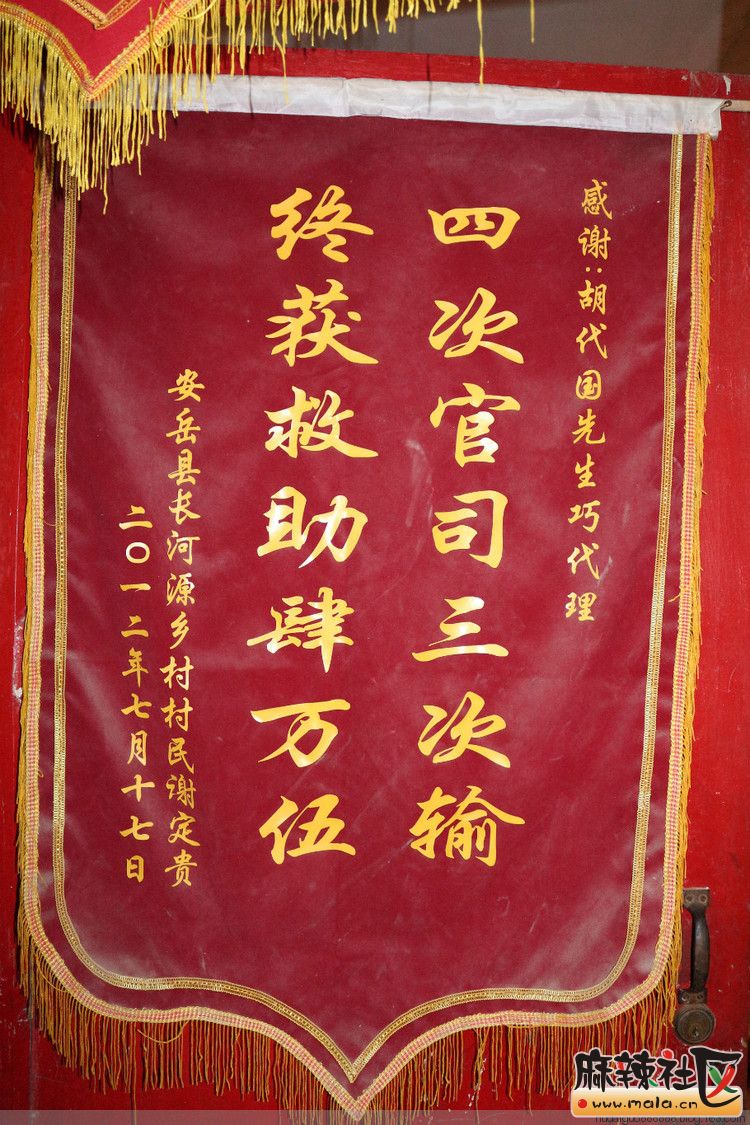 感谢:胡代国先生巧代理
四次官司三次输
终获救助肆万伍
安岳县长河源乡村村民谢定贵
二〇一二年七月十七日
麻辣社区
www.mala.cn